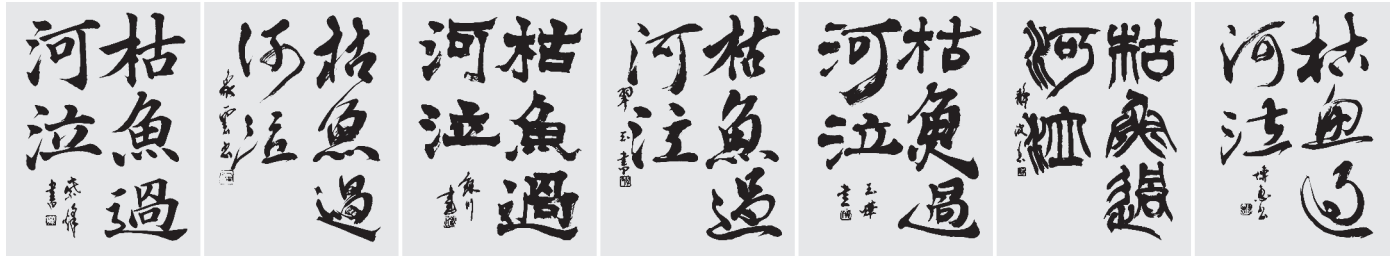 枯魚過
河泣
書
枯魚過
河泣
枯魚過
河泣
書
枯魚過
河泣
翠玉書
枯魚過
河泣
玉華
書
枯魚過
河泣
枯魚過
河泣